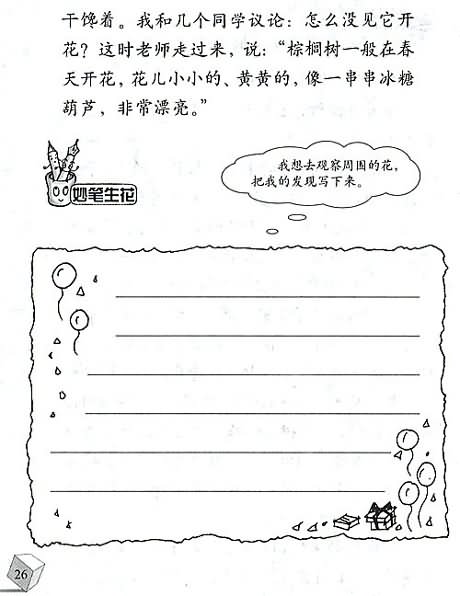 干馋着。我和几个同学议论：怎么没见它开
花？这时老师走过来，说：“棕榈树一般在春
天开花，花儿小小的、黄黄的，像一串串冰糖
葫芦，非常漂亮。”
妙笔生花
我想去观察周围的花，
把我的发现写下来。
26